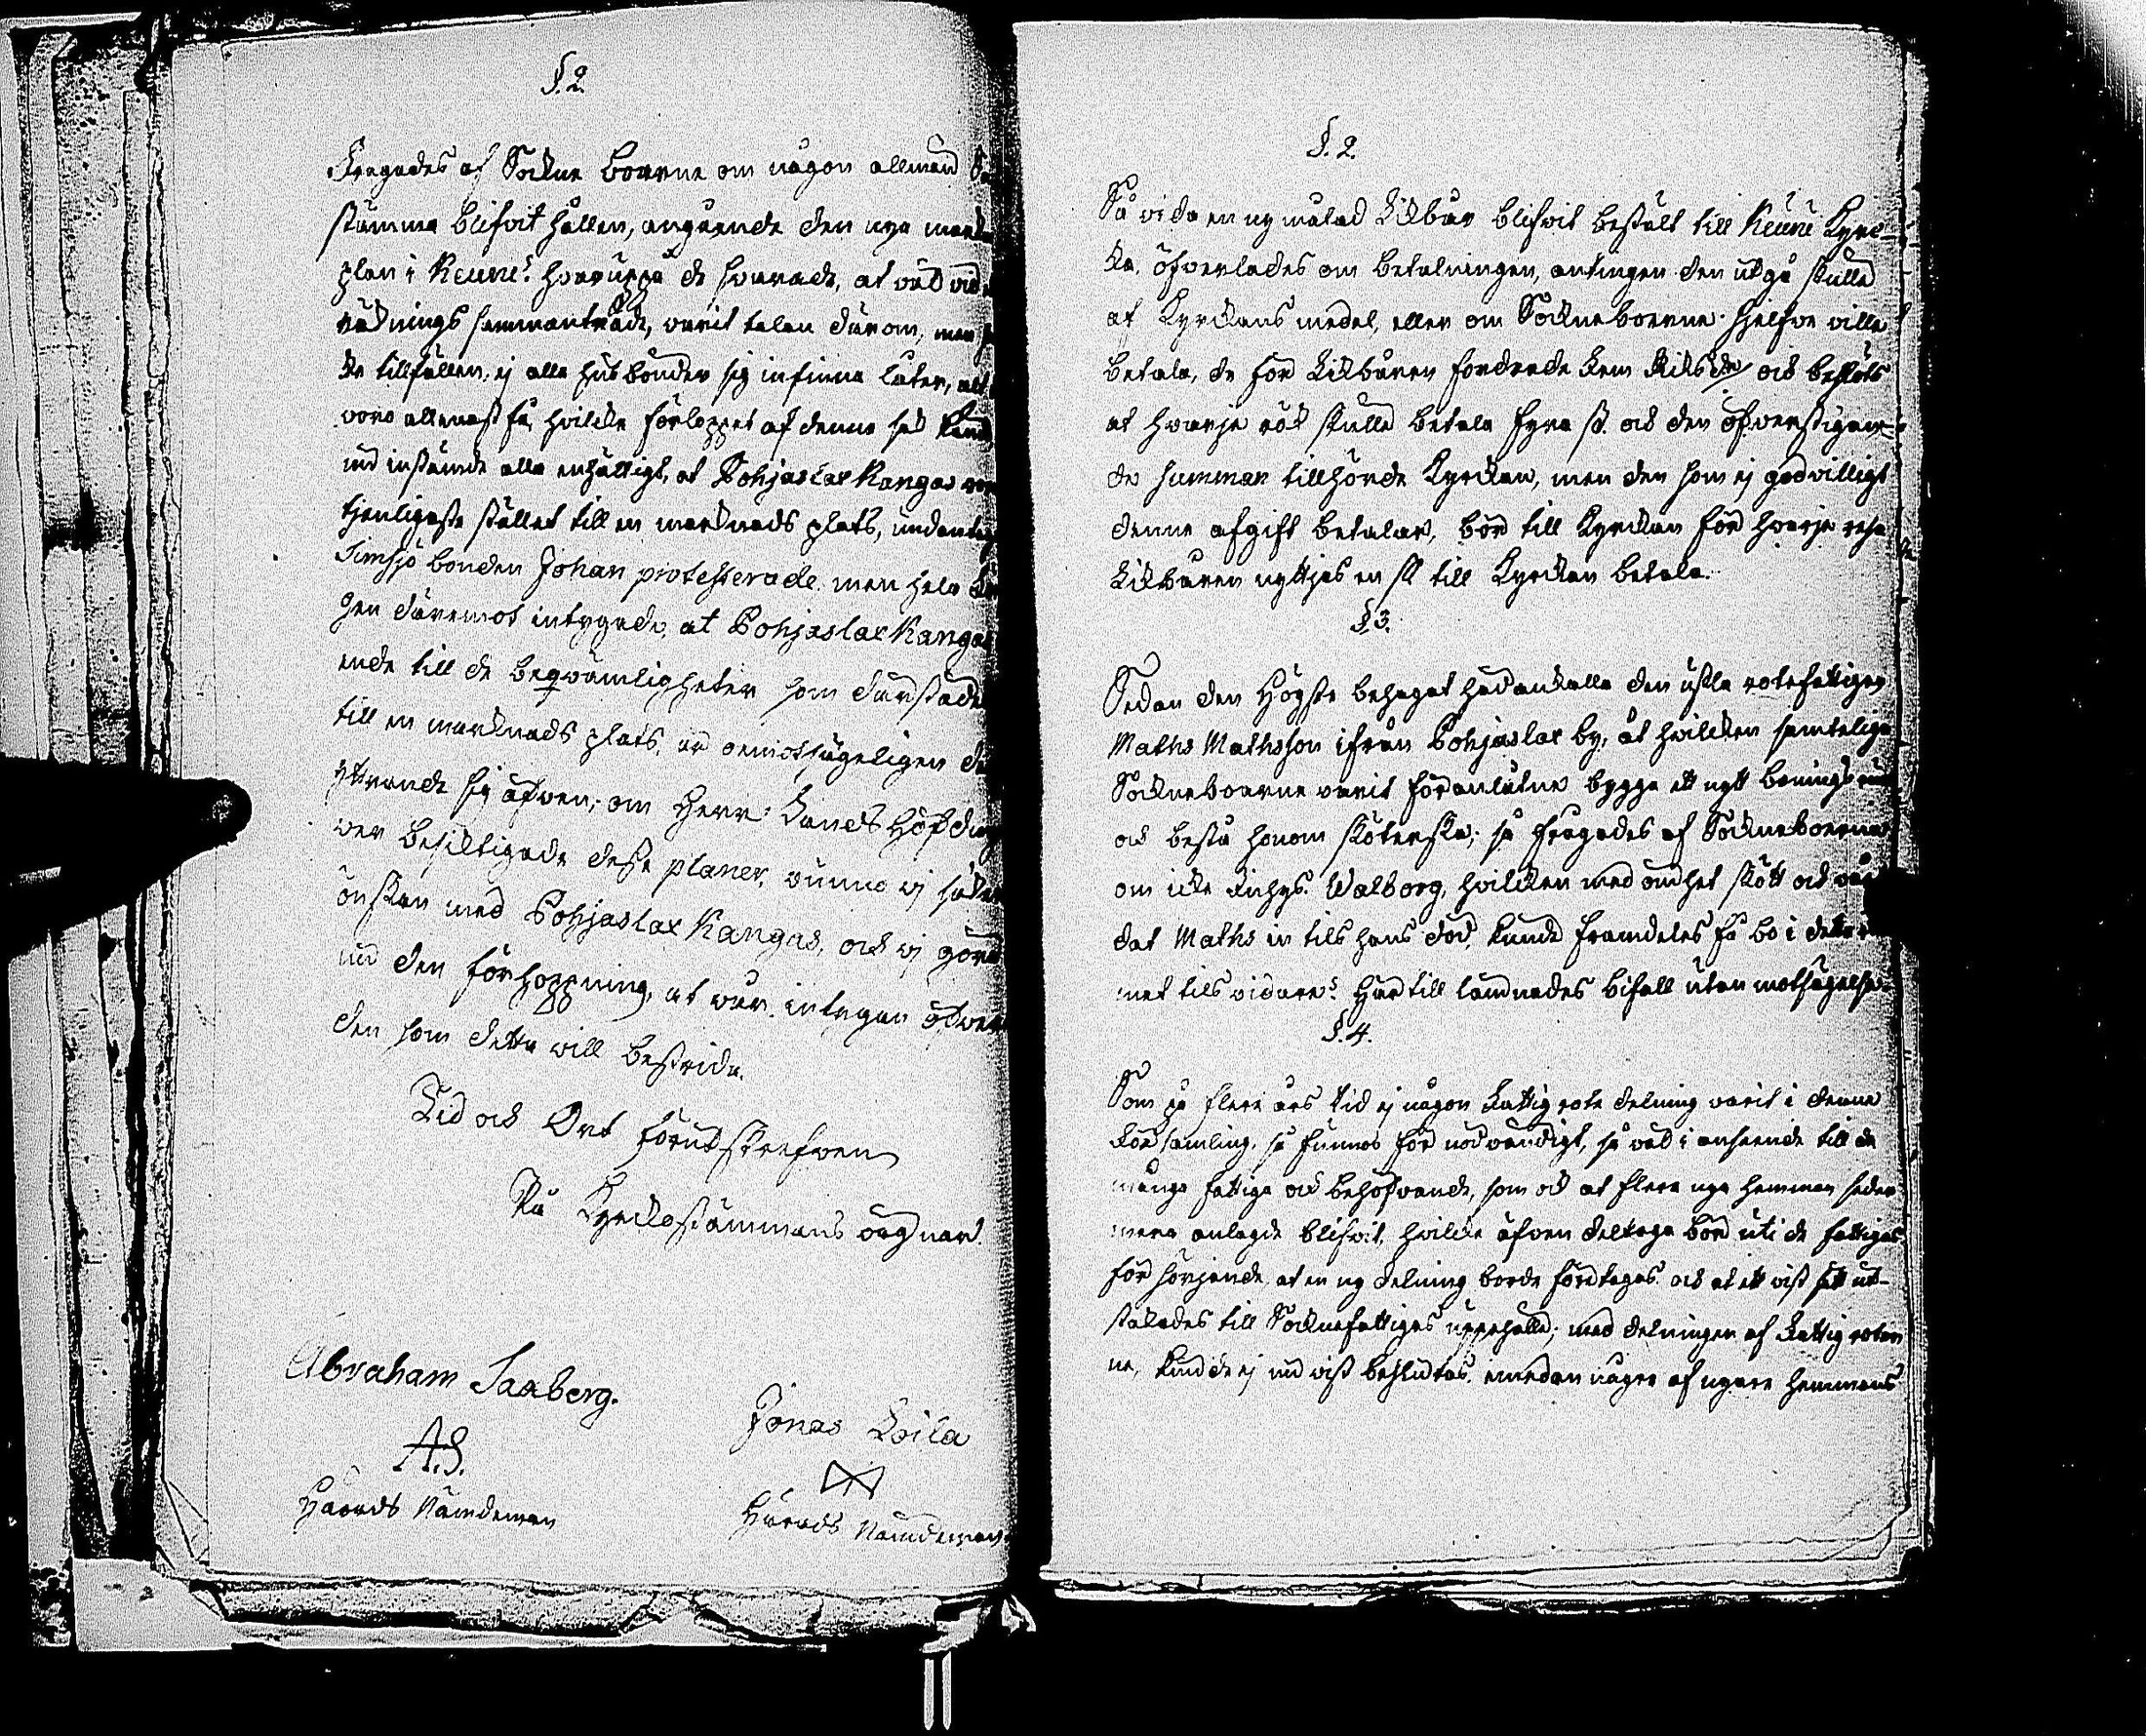 §. 2.
Frågades af Sockne boerne om någon allmän
stämma blifvit hållen, angående den nya
plan i Reune? hvaruppå de svarade, at väl vid
räknings sammanträde, varit talan därom, men
de tillfällen, ej alla husbönder sig infinna låter,
voro allenast få, hvilcke förloppet af denna sak
nu instämde alla enhälligt, at Pohjaslax Kangas
tjenligaste stället till en marknads plats, undantag
Simsjö bonden Johan protesterade men hela
gen däremot intygade, at Pohjaslax Kangas
ende till de beqvämligheter som därstädes
till en marknads plats, är oemotsägeligen
yttrande sig äfven, om Herr Lands Höfding
ver besiktigade desse planer, vunne vj
önskan med Pohjaslax Kangas, och vj göra
nu den förhoppning, at vår intygan öfver
den som detta vill bestrida.
Tid och Ort förutskrefven
På Kyrckostämmans vägnar.
Abraham Saxberg.
Jonas Loila
A.S.
Härads Nämdeman
Härads Nämdeman
§. 2.
Så vida en ny målad Likbår blifvit bestält till Reune Kyrc-
ka, öfverlades om betalningen, antingen den utgå skulle
af Kyrckans medel, eller om Sockneboerne sjelfve ville
betala, de för Likbåren fordrade fem Riksdr och beslöts
at hvarje rök skulle betala fyra sk. och den öfverstigan-
de summan tillhörde Kyrckan, men den som ej godvilligt
denne afgift betalar, bör till Kyrckan för hvarje resa
Likbåren nyttjas en sk till Kyrckan betala.
§. 3.
Sedan den Högste behagat hädankalla den usla rotefattigen
Maths Mathsson ifrån Pohjaslax by, åt hvilcken samtelige
Sockneboerne varit föranlåtne bygga ett nytt bonings rum
och bestå honom sköterska; så frågades af Sockneboerne
om icke Pigan Walborg, hvilcken med ömhet skött och vår
dat Maths in tils hans död, kunde framdeles få bo i detta
met tils vidare? Härtill lämnades bifall utan motsägelse.
§. 4.
Som på flere års tid ej någon Fattig rote delning varit i denne
Församling, så funnos för nödvändigt, så väl i anseende till de
många fattiga och behöfvande, som och at flere nya hemman seder
mera anlagde blifvit, hvilcke äfven deltaga bör uti de fattigas
försörjande, at en ny delning borde företagas och at ett visst sätt ut-
stakades till Socknefattigas uppehälle; med delningen af Fattig roten
ne, kunde ej nu visst beslutas, emedan några af nyare hemmans